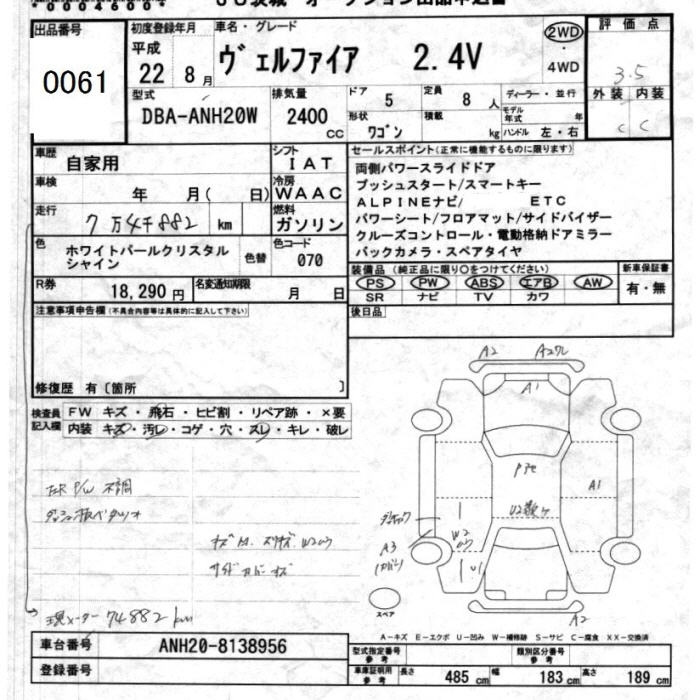 出品番号
0061
初度登録年月
平成
22 8月
車名・グレード
ヴェルファイア 2.4V
2WD
・
4WD
評価点
3.5
外装 内装
C C
型式
DBA-ANH20W
排気量
2400
CC
ドア
5
定員
8人
形状
ワゴン
積載
kg
ディーラー・並行
モデル年式 年
ハンドル 左・右
車歴
自家用
シフト
IAT
車検
年 月( 日)
冷房
WAAC
走行
7万4千882 km
燃料
ガソリン
色
ホワイトパールクリスタル
シャイン
色替
色コード
070
R券
18,290円
名変通知期限
月 日
セールスポイント(正常に機能するものに限ります)
両側パワースライドドア
プッシュスタート/スマートキー
ALPINEナビ/ ETC
パワーシート/フロアマット/サイドバイザー
クルーズコントロール・電動格納ドアミラー
バックカメラ・スペアタイヤ
装備品(純正品に限り○をつけてください)
PS PW ABS エアB AW
SR ナビ TV カワ
新車保証書
有・無
後日品
注意事項申告欄(不具合内容等は具体的に記入して下さい)
修復歴 有〔箇所 〕
検査員
記入欄
FW キズ・飛石・ヒビ割・リペア跡・×要
内装 キズ・汚レ・コゲ・穴・スレ・キレ・破レ
P/W 不調
現メーター 74882 km
A2
A1
A1
W2
A3
A2
スペア
A-キズ E-エクボ U-凹み W-補修跡 S-サビ C-腐食 XX-交換済
車台番号
ANH20-8138956
登録番号
型式指定番号
参考
類別区分番号
参考
車庫証明用
参考
長さ 485cm
幅 183cm
高さ 189cm